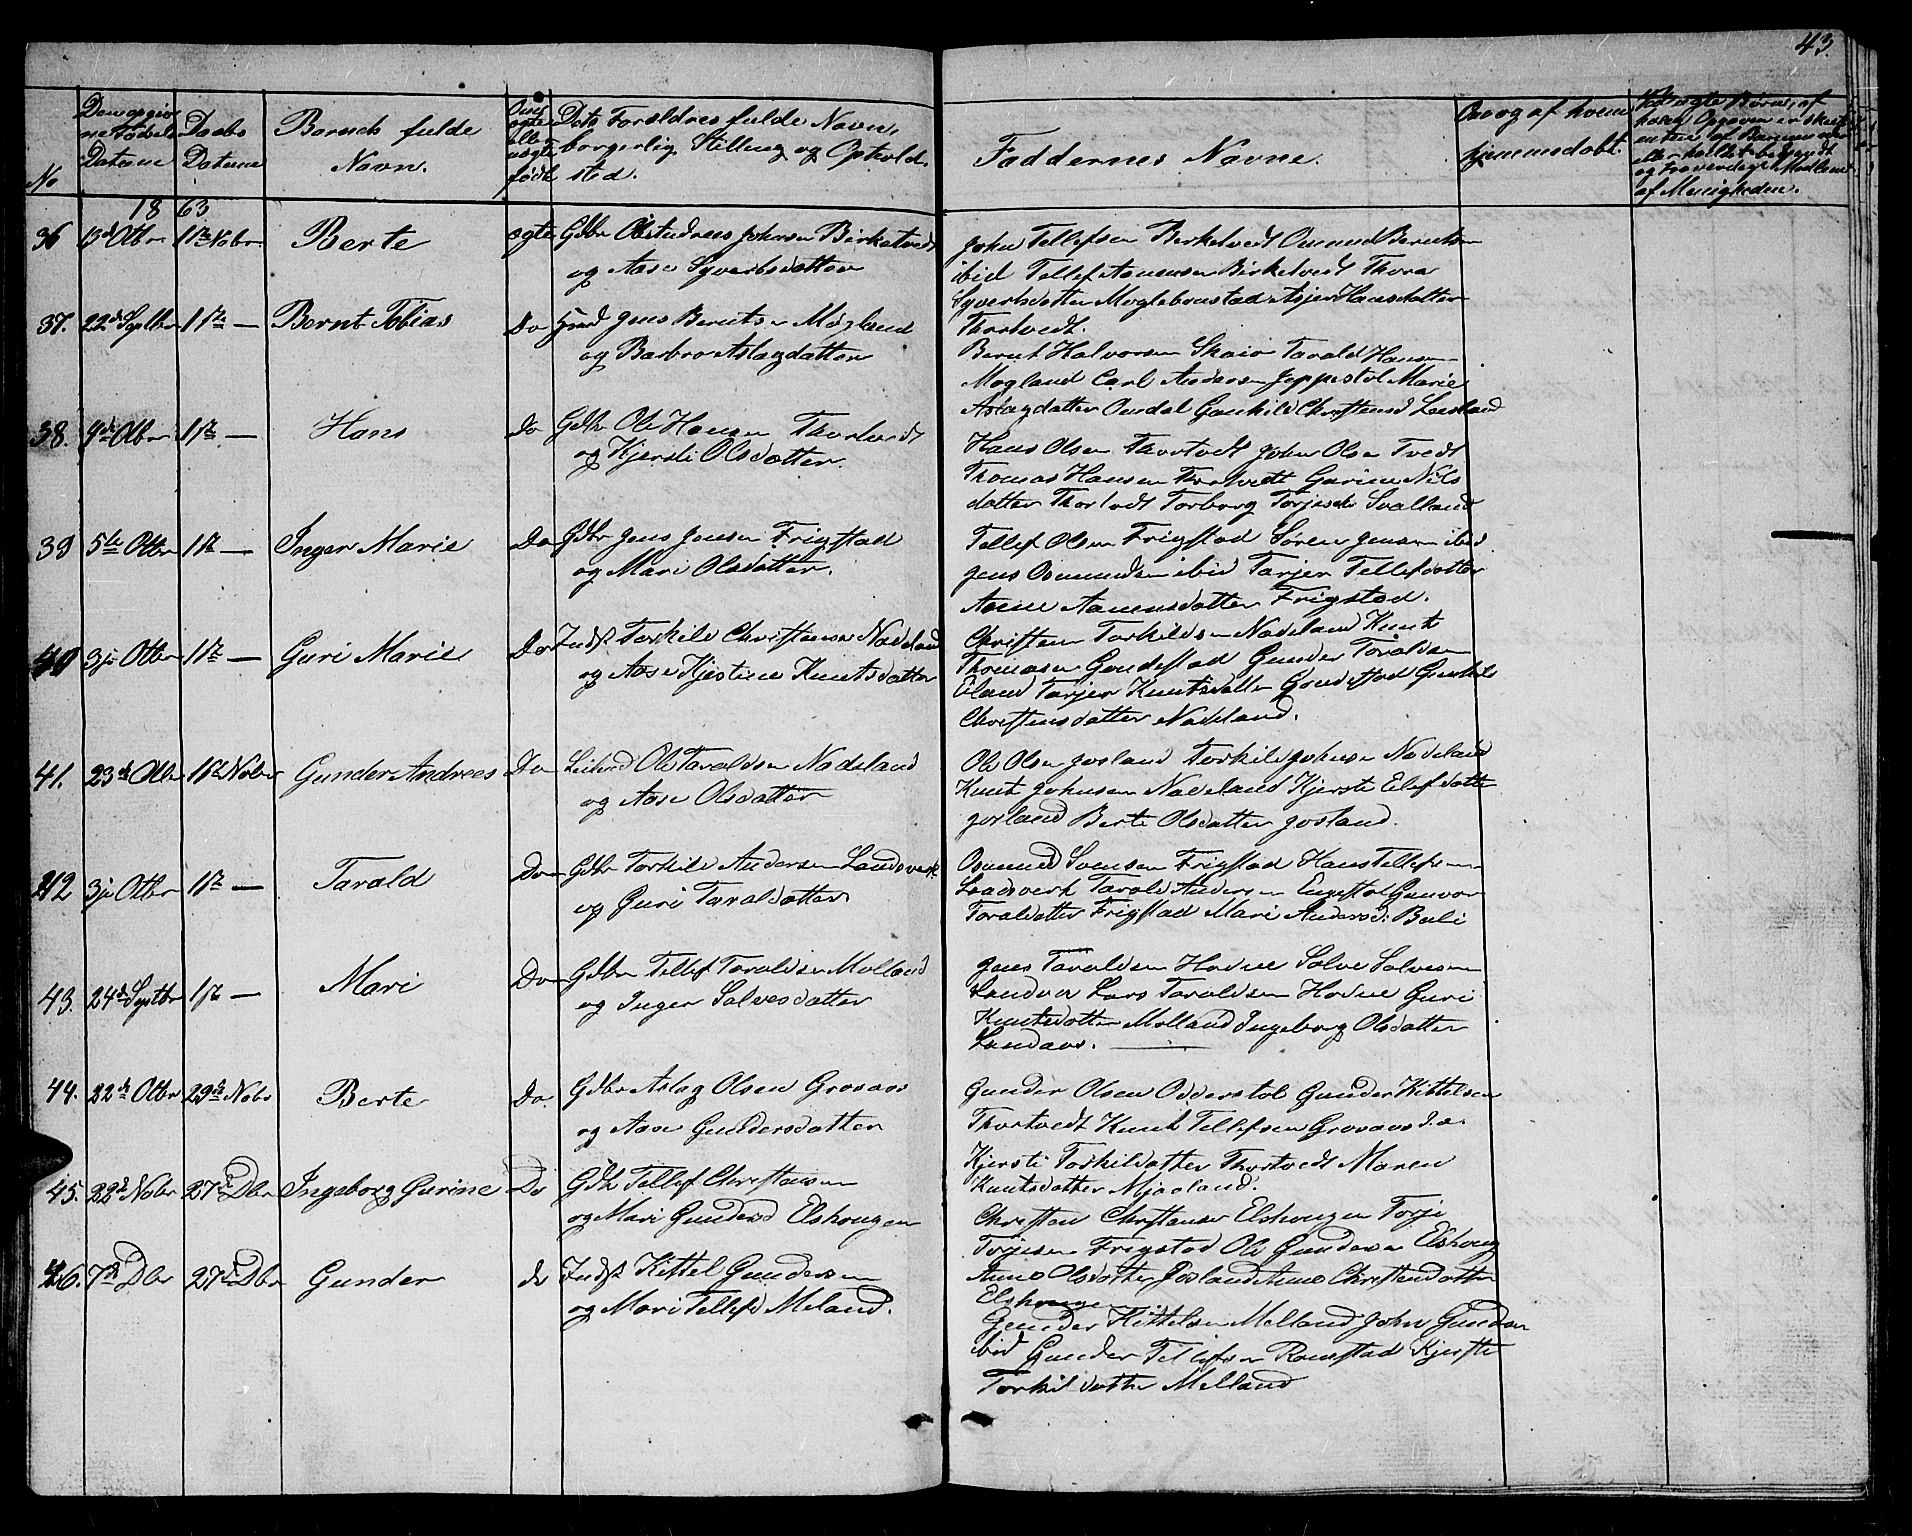 43.
No
Datum
Daabs
Datum
Barnets fulde
Navn.
født
Dets Forældres fulde Navn,
borgerlig Stilling og Ophold
sted.
Faddernes Navne.
Om og af hvem
hjemmedøbt.
af Menigheden.
1863
36 13d Otbr 1ste Nobr Berte ægte Gdbr Johnsen Birketvedt
og Aase Syvertsdatter
John Tellefsen Birketvedt Omund Berntsen
ibid Tellef Aanensen Birketvedt Thora
Syvertsdatter Moglebonstad Hansdatter
Thortvedt.
37. 22d Septbr 1ste — Bernt Tobias Do Jens Berntsen Mogland
og Barbro Aslagdatter
Bernt Halvorsen Skaio Tarald Hansen
Mogland Carl Andersen Jeppestol Marie
Aslagdatter Omdal Gunhild Christensd
38. 9d Otbr 1ste — Hans Do Gdbr Ole Hansen Thortvedt
og Kjersti Olsdatter.
Hans Olsen Thortvedt John Olsen Tvedt
Thomas Hansen Gurine Nils
datter Thortvedt Torborg Svalland
39 5te Otbr 1ste — Inger Marie Do Gdbr Jens Jensen Frigstad
og Mari Olsdatter.
Tellef Olsen Frigstad Sören Jensen ibid.
Jens Osmundsen ibid Tarjer Tellefsdatter
Aanensdatter Frigstad.
40 3je Otbr 1ste — Guri Marie Do Indst Torkild Christensen Nadeland
og Aase Kjestine Knutsdatter
Christen Torkildsen Nadeland Knut
Thomasen Gondestad Gunder Taraldsen
Eland Tarjer Knutsdatter Gondestad Gunhild
Christensdatter Nadeland.
41. 23de Otbr 1ste Nobr Gunder Andreas Do Ole Taraldsen Nadeland
og Aase Olsdatter
Ole Olsen Josland Torkild Johnsen Nadeland
Knut Johnsen Nadeland Kjersti Elefsdatter
Josland Berte Olsdatter Josland.
42 3je Otbr 1ste — Tarald Do Gdbr Torkild Andersen Landsverk
og Guri Taralsdatter
Osmund Svensen Frigstad Hans Tellefsen
Landsverk Tarald Andersen Engestol Gunvor
Taralsdatter Frigstad Mari Andersd. Beli
43. 24de Septbr 1ste — Mari Do Gdbr Tellef Taraldsen Molland
og Inger Salvesdatter
Jens Taraldsen Hodne Salve Salvesen
Lars Taraldsen Hodne Guri
Knutsdatter Molland Ingeborg Olsdatter
Landaas.
44. 22de Otbr 29de Nobr Berte Do. Gdbr Aslag Olsen Grosaas
og Aase Gundersdatter
Gunder Olsen Odderstol Gunder Kittelsen
Thortvedt Knut Tellefsen Grosaas
Kjersti Torkildsdatter Thortvedt Maren
Knutsdatter Mjaaland.
45. 22de Nobr 27de Dbr Ingeborg Gurine Do Gdbr Tellef Christensen
og Mari Gundersd Elshougen
Christen Christensen Elshougen Torje
Torjesen Frigstad Ole Gundersen Elshoug
Anne Olsdatter Josland Anne Christensdatter
Elshougen
46. 7de Dbr 27de Dbr Gunder do Indst Kittel Gundersen
og Mari Tellefsd Meland.
Gunder Kittelsen Melland John Gundersen
ibid Gunder Tellefsen Romstad Kjersti
Torkildsdatter Melland